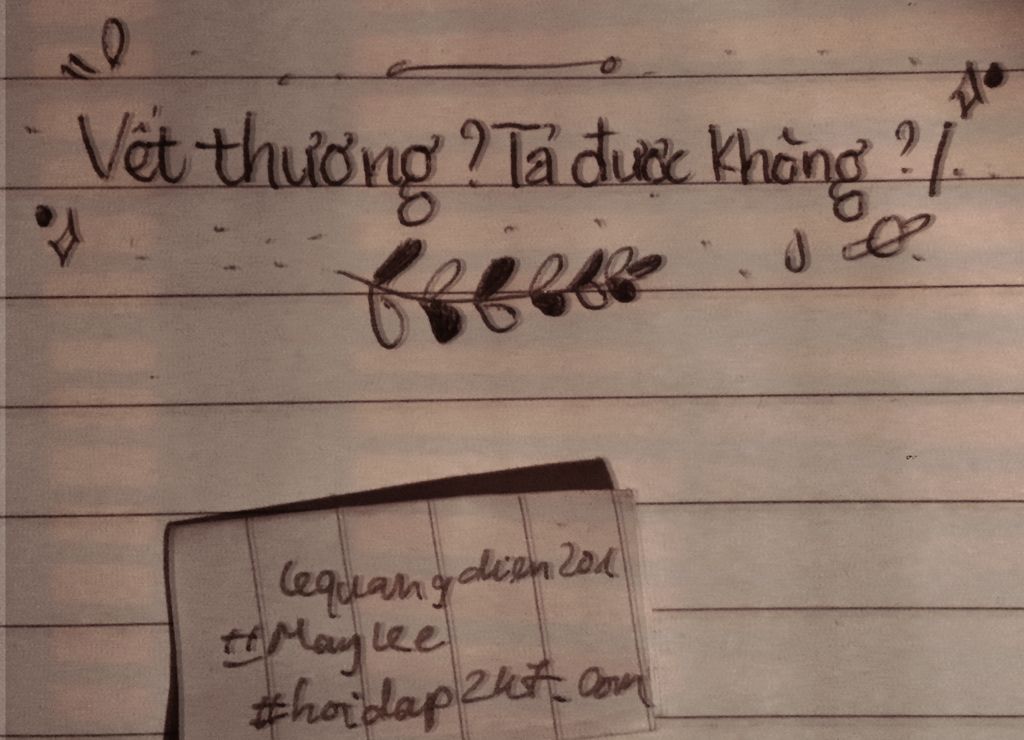 Vết thương? Tả được không?/.
lequangdien201
#Maylee
#hoidap247.com